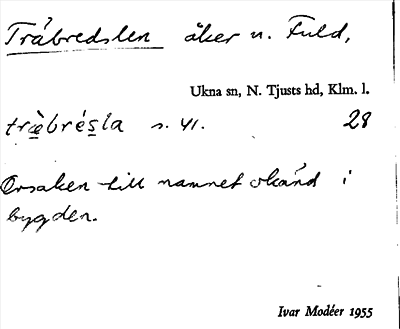 Tråbredslen åker n. Fuld,
Ukna sn, N. Tjusts hd, Klm. l.
træ̀brés̲la s. 41. 28
Orsaken till namnet okänd i
bygden.
Ivar Modéer 1955